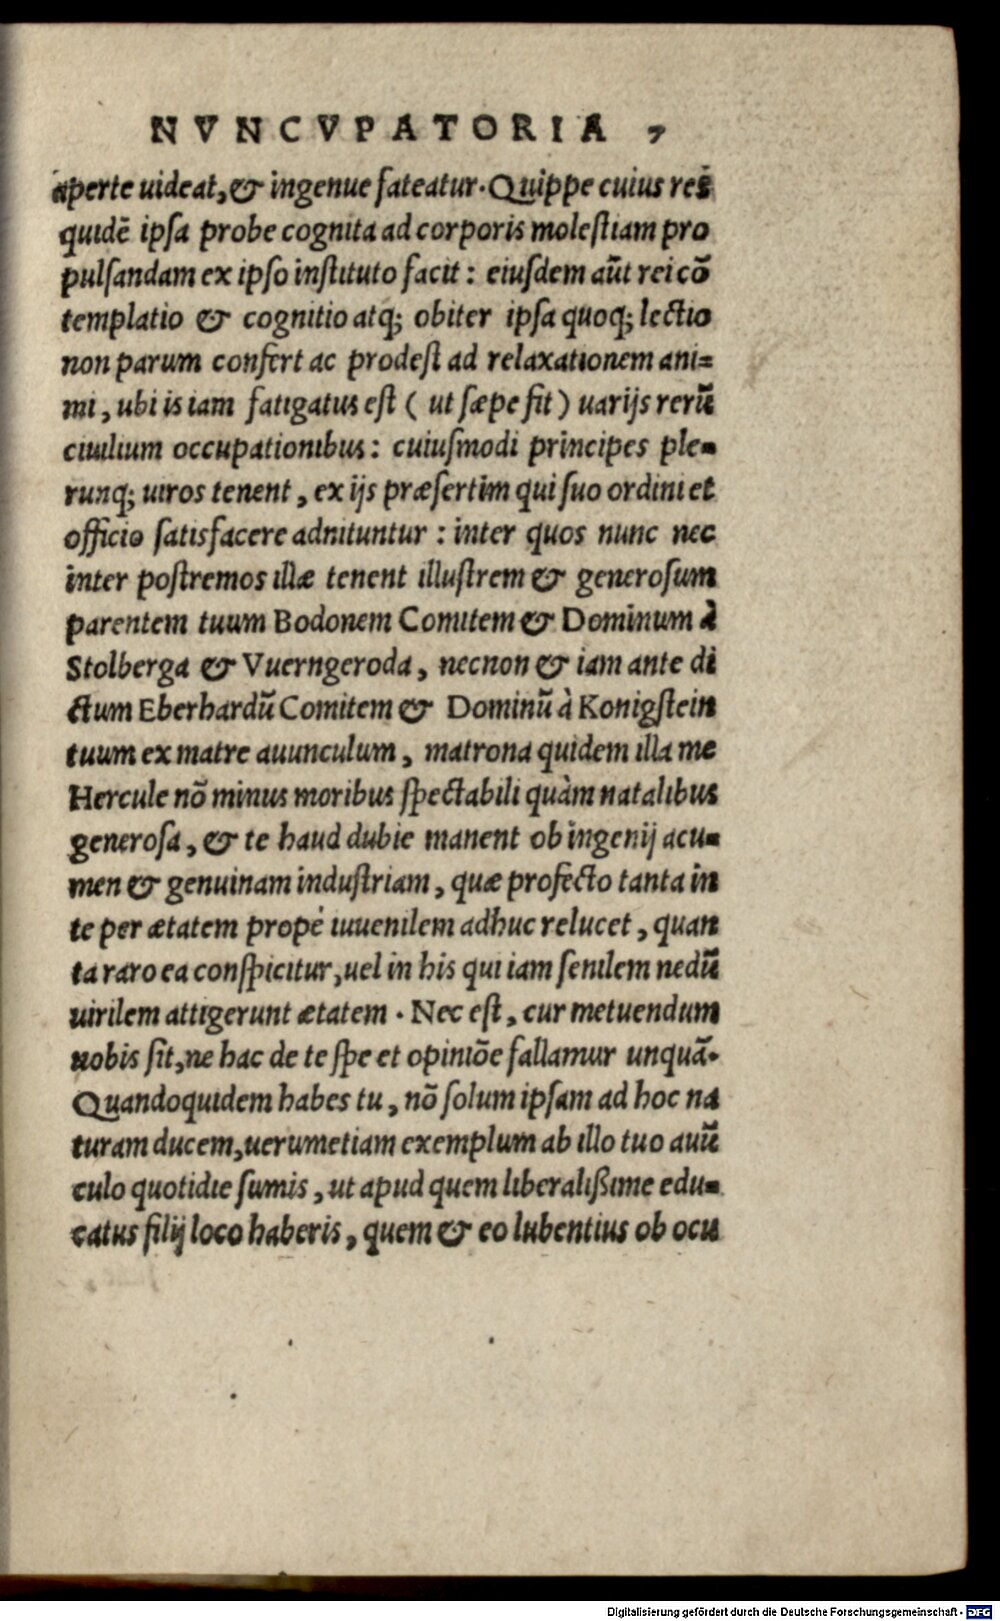 NVNCVPATORIA 7
aperte uideat, & ingenue fateatur. Quippe cuius res
quidẽ ipsa probe cognita ad corporis molestiam pro
pulsandam ex ipso instituto facit: eiusdem aũt rei cõ
templatio & cognitio atq; obiter ipsa quoq; lectio
non parum confert ac prodest ad relaxationem ani=
mi, ubi is iam fatigatus est ( ut sæpe fit ) uarijs rerũ
ciuilium occupationibus: cuiusmodi principes ple=
runq; uiros tenent, ex ijs præsertim qui suo ordini et
officio satisfacere adnituntur : inter quos nunc nec
inter postremos illæ tenent illustrem & generosum
parentem tuum Bodonem Comitem & Dominum à
Stolberga & Vuerngeroda, necnon & iam ante di
ctum Eberhardũ Comitem & Dominũ à Konigstein
tuum ex matre auunculum, matrona quidem illa me
Hercule nõ minus moribus spectabili quàm natalibus
generosa, & te haud dubie manent ob ingenij acu=
men & genuinam industriam, quæ profecto tanta in
te per ætatem propè iuuenilem adhuc relucet, quan
ta raro ea conspicitur, uel in his qui iam senilem nedũ
uirilem attigerunt ætatem. Nec est, cur metuendum
nobis sit, ne hac de te spe et opiniõe fallamur unquã.
Quandoquidem habes tu, nõ solum ipsam ad hoc na
turam ducem, uerumetiam exemplum ab illo tuo auũ
culo quotidie sumis, ut apud quem liberalißime edu=
catus filij loco haberis, quem & eo lubentius ob ocu
Digitalisierung gefördert durch die Deutsche Forschungsgemeinschaft - DFG